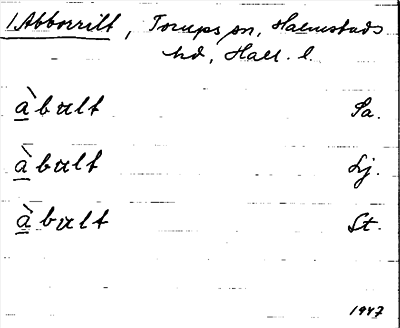 1 Abborrilt, Torups sn, Halmstads
hd, Hall. l.
àb𝑢lt Sa.
àbult Lj.
àbult St.
1947